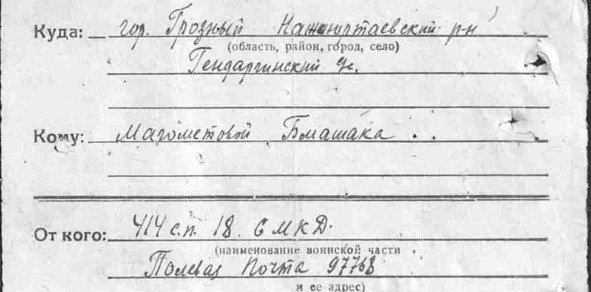 Куда: гор. Грозный Нашюртаевский р-н
(область, район, город, село)
Гендаргинский с/с.
Кому: Магометовой Бмашака
От кого: 414 с.п. 18. СМКД.
(наименование воинской части
Полевая Почта 97768
и ее адрес)